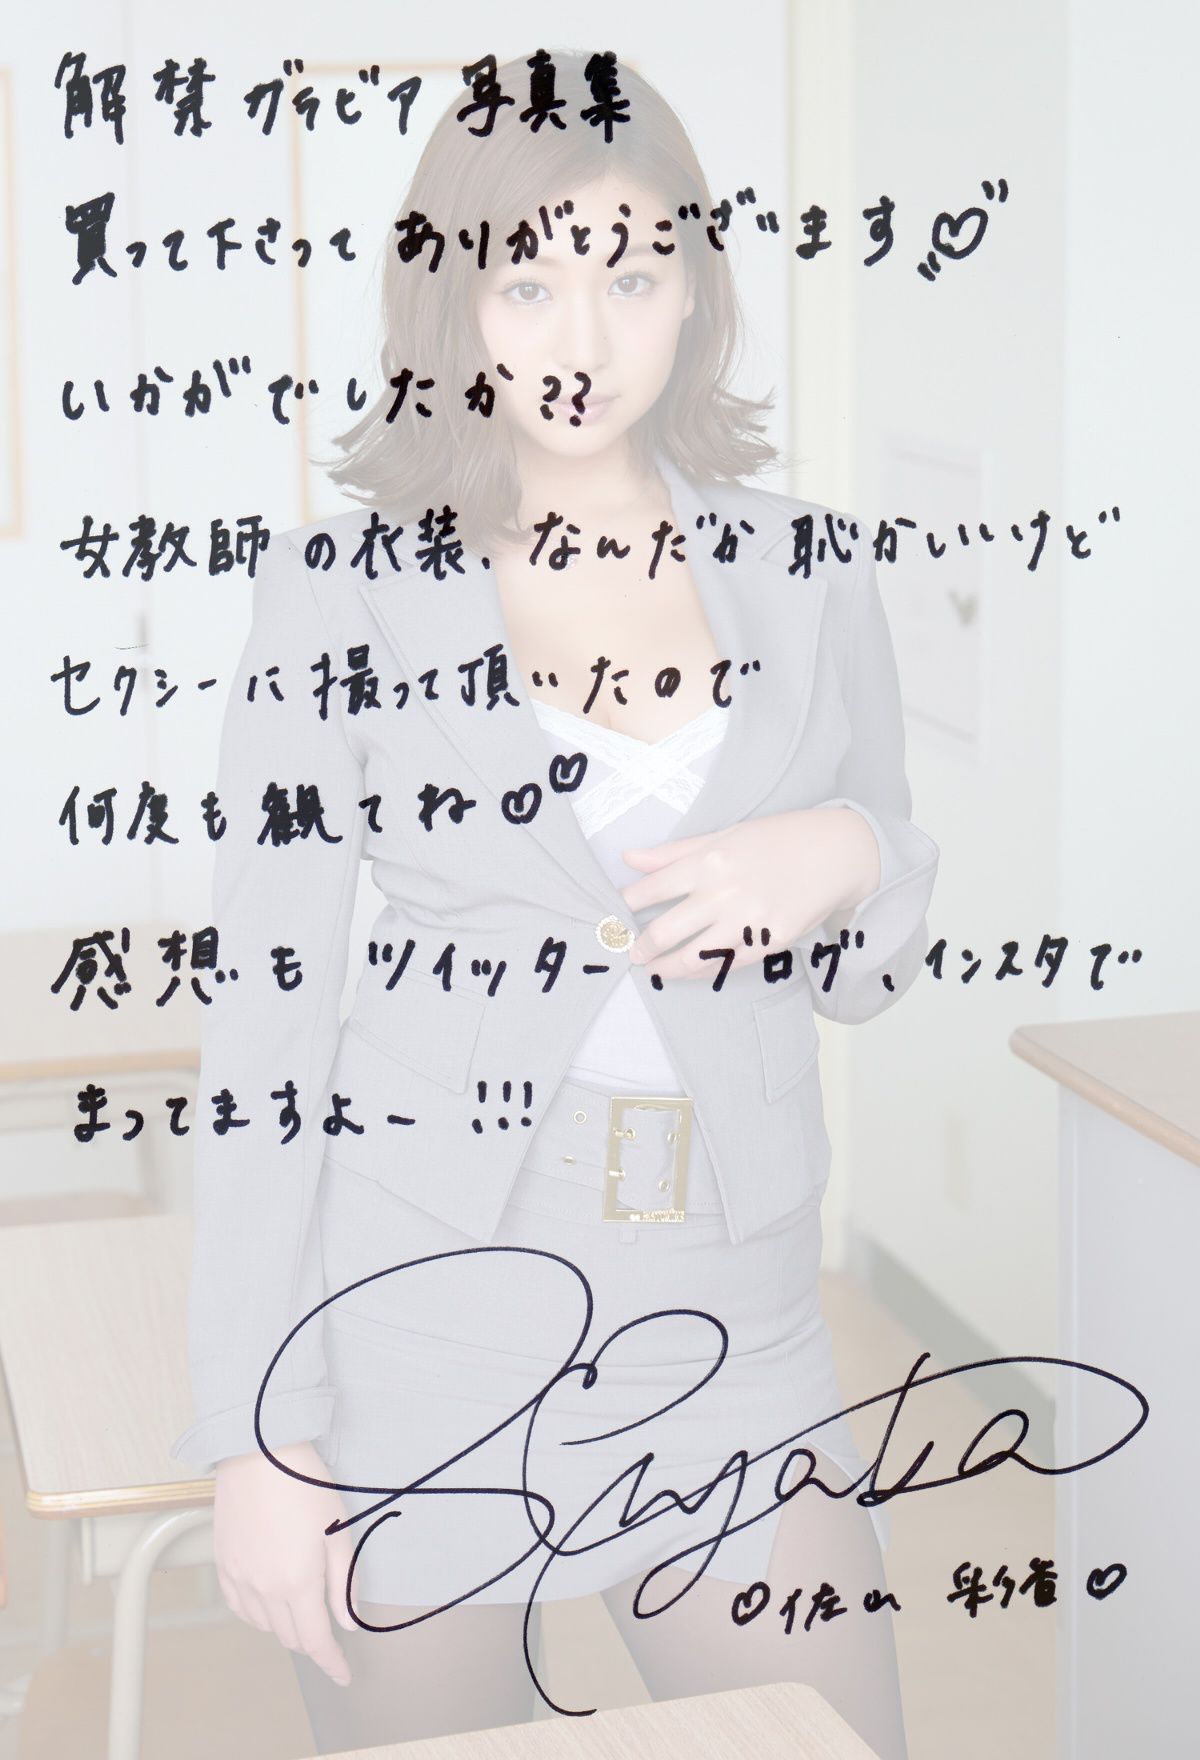 解禁グラビア写真集
買って下さってありがとうございます♡
いかがでしたか??
女教師の衣装、なんだか恥かしいけど
セクシーに撮って頂いたので
何度も観てね♡♡
感想もツイッター、ブログ、インスタで
まってますよー!!!
♡佐山 彩香♡